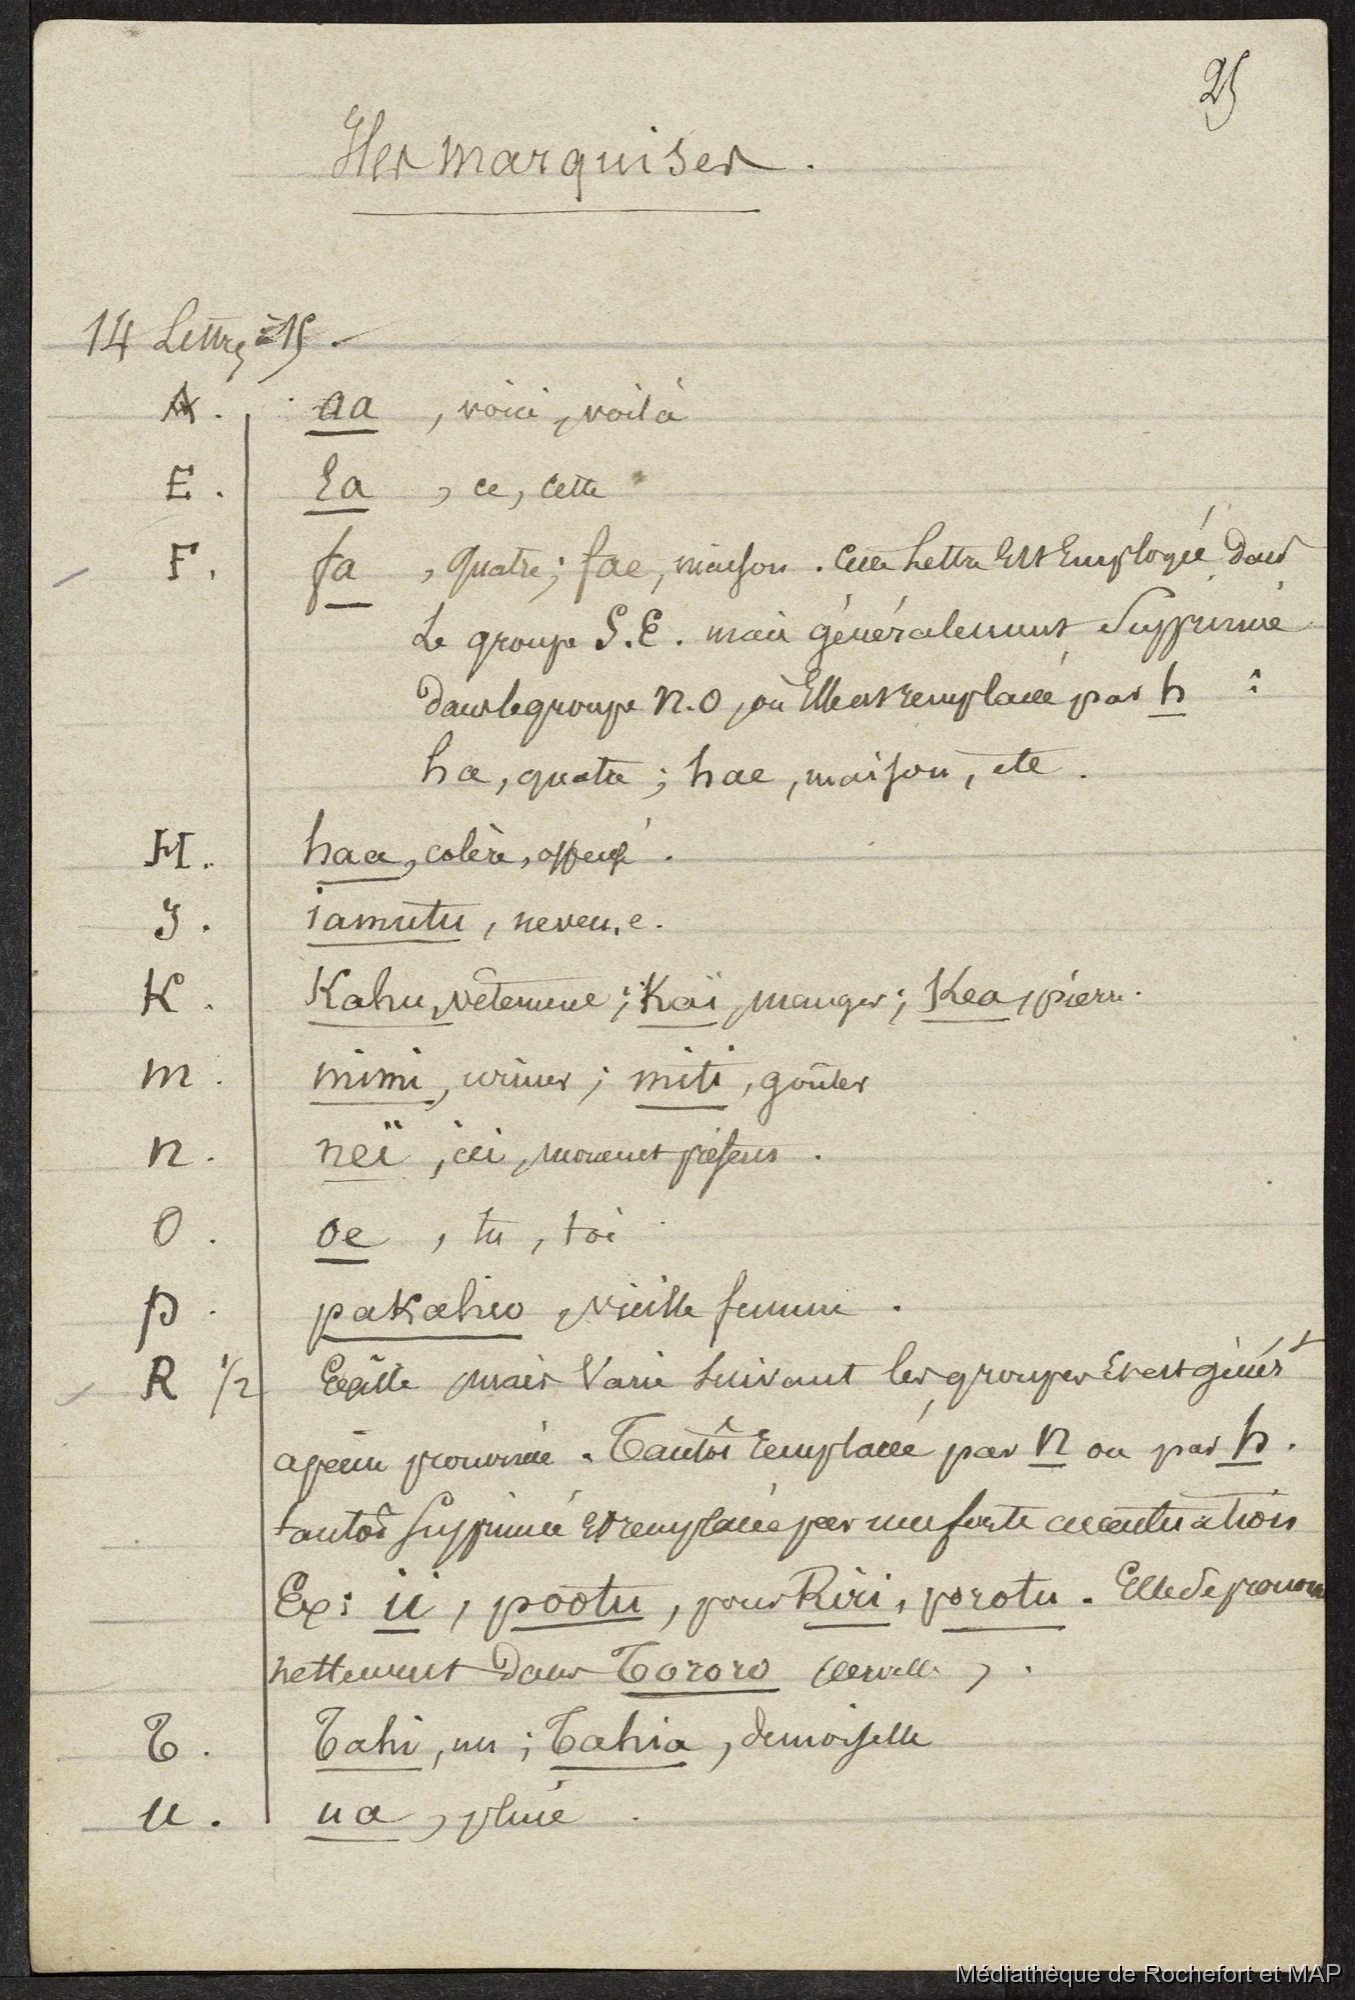 25
Iles marquises.
14 Lettres à 15.
A. aa, voici, voilà
E. Ea, ce, cette
F. fa, quatre; fae, maison. Cette Lettre Est Employée dans
Le groupe S.E. mais généralement Supprimée
dans le groupe N.O, où Elle est remplacée par h :
ha, quatre; hae, maison, etc.
H. haa, colère, offensé.
I. iamutu, neveu, e.
K. Kahu, vêtement; Kaï, manger; Kea, pierre.
m. mimi, uriner; miti, goûter
n. neï, ici, moment présent.
O. oe, tu, toi
p. pakahio, vieille femme.
R 1/2 Existe mais Varie suivant les groupes Et est génért
à peine prononcée. Tantôt remplacée par n ou par h.
tantôt Supprimée Et remplacée par une forte accentuation
Ex: ii, pootu, pour Riri, porotu. Elle se prononce
nettement dans Tororo cervelle,.
T. Tahi, un; Tahia, demoiselle
u. ua, pluie.
Médiathèque de Rochefort et MAP